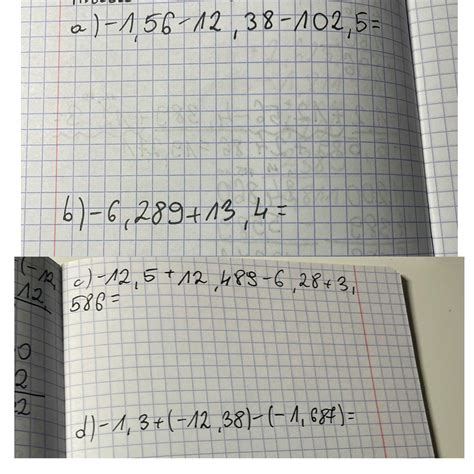 a) -1,56-12,38-102,5=
b) -6,289+13,4=
(-12,
12
0
2
-2
c) -12,5+12,489-6,28+3,
586=
d) -1,3+(-12,38)-(-1,687)=